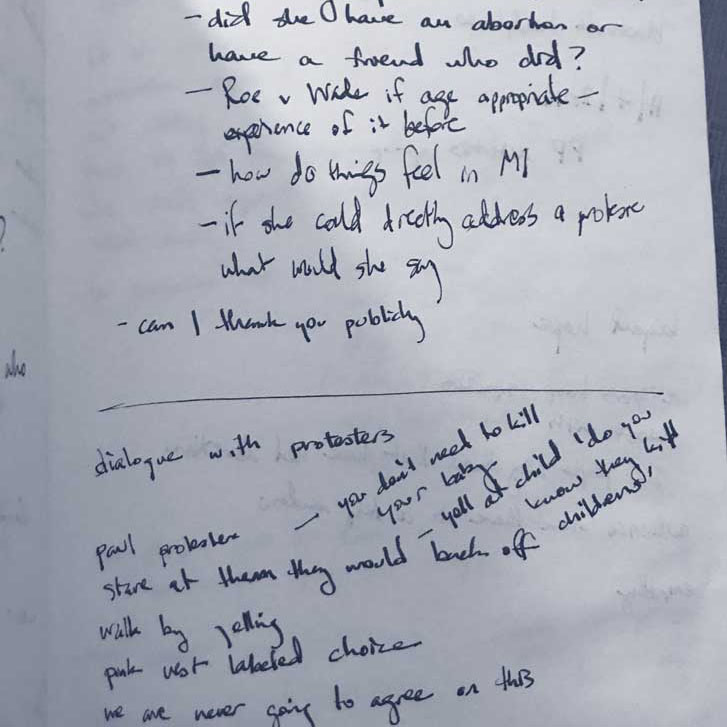 - did she / have an abortion or
have a friend who did?
- Roe v Wade if age appropriate -
experience of it before
- how do things feel in MI
- if she could directly address a protestor
what would she say
- can I thank you publicly
who
dialogue with protesters
- you don't need to kill
your baby
- yell at child 'do you
know they kill
children'
paul protesters
stare at them they would back off
walk by yelling
pink vest labeled choice
we are never going to agree on this